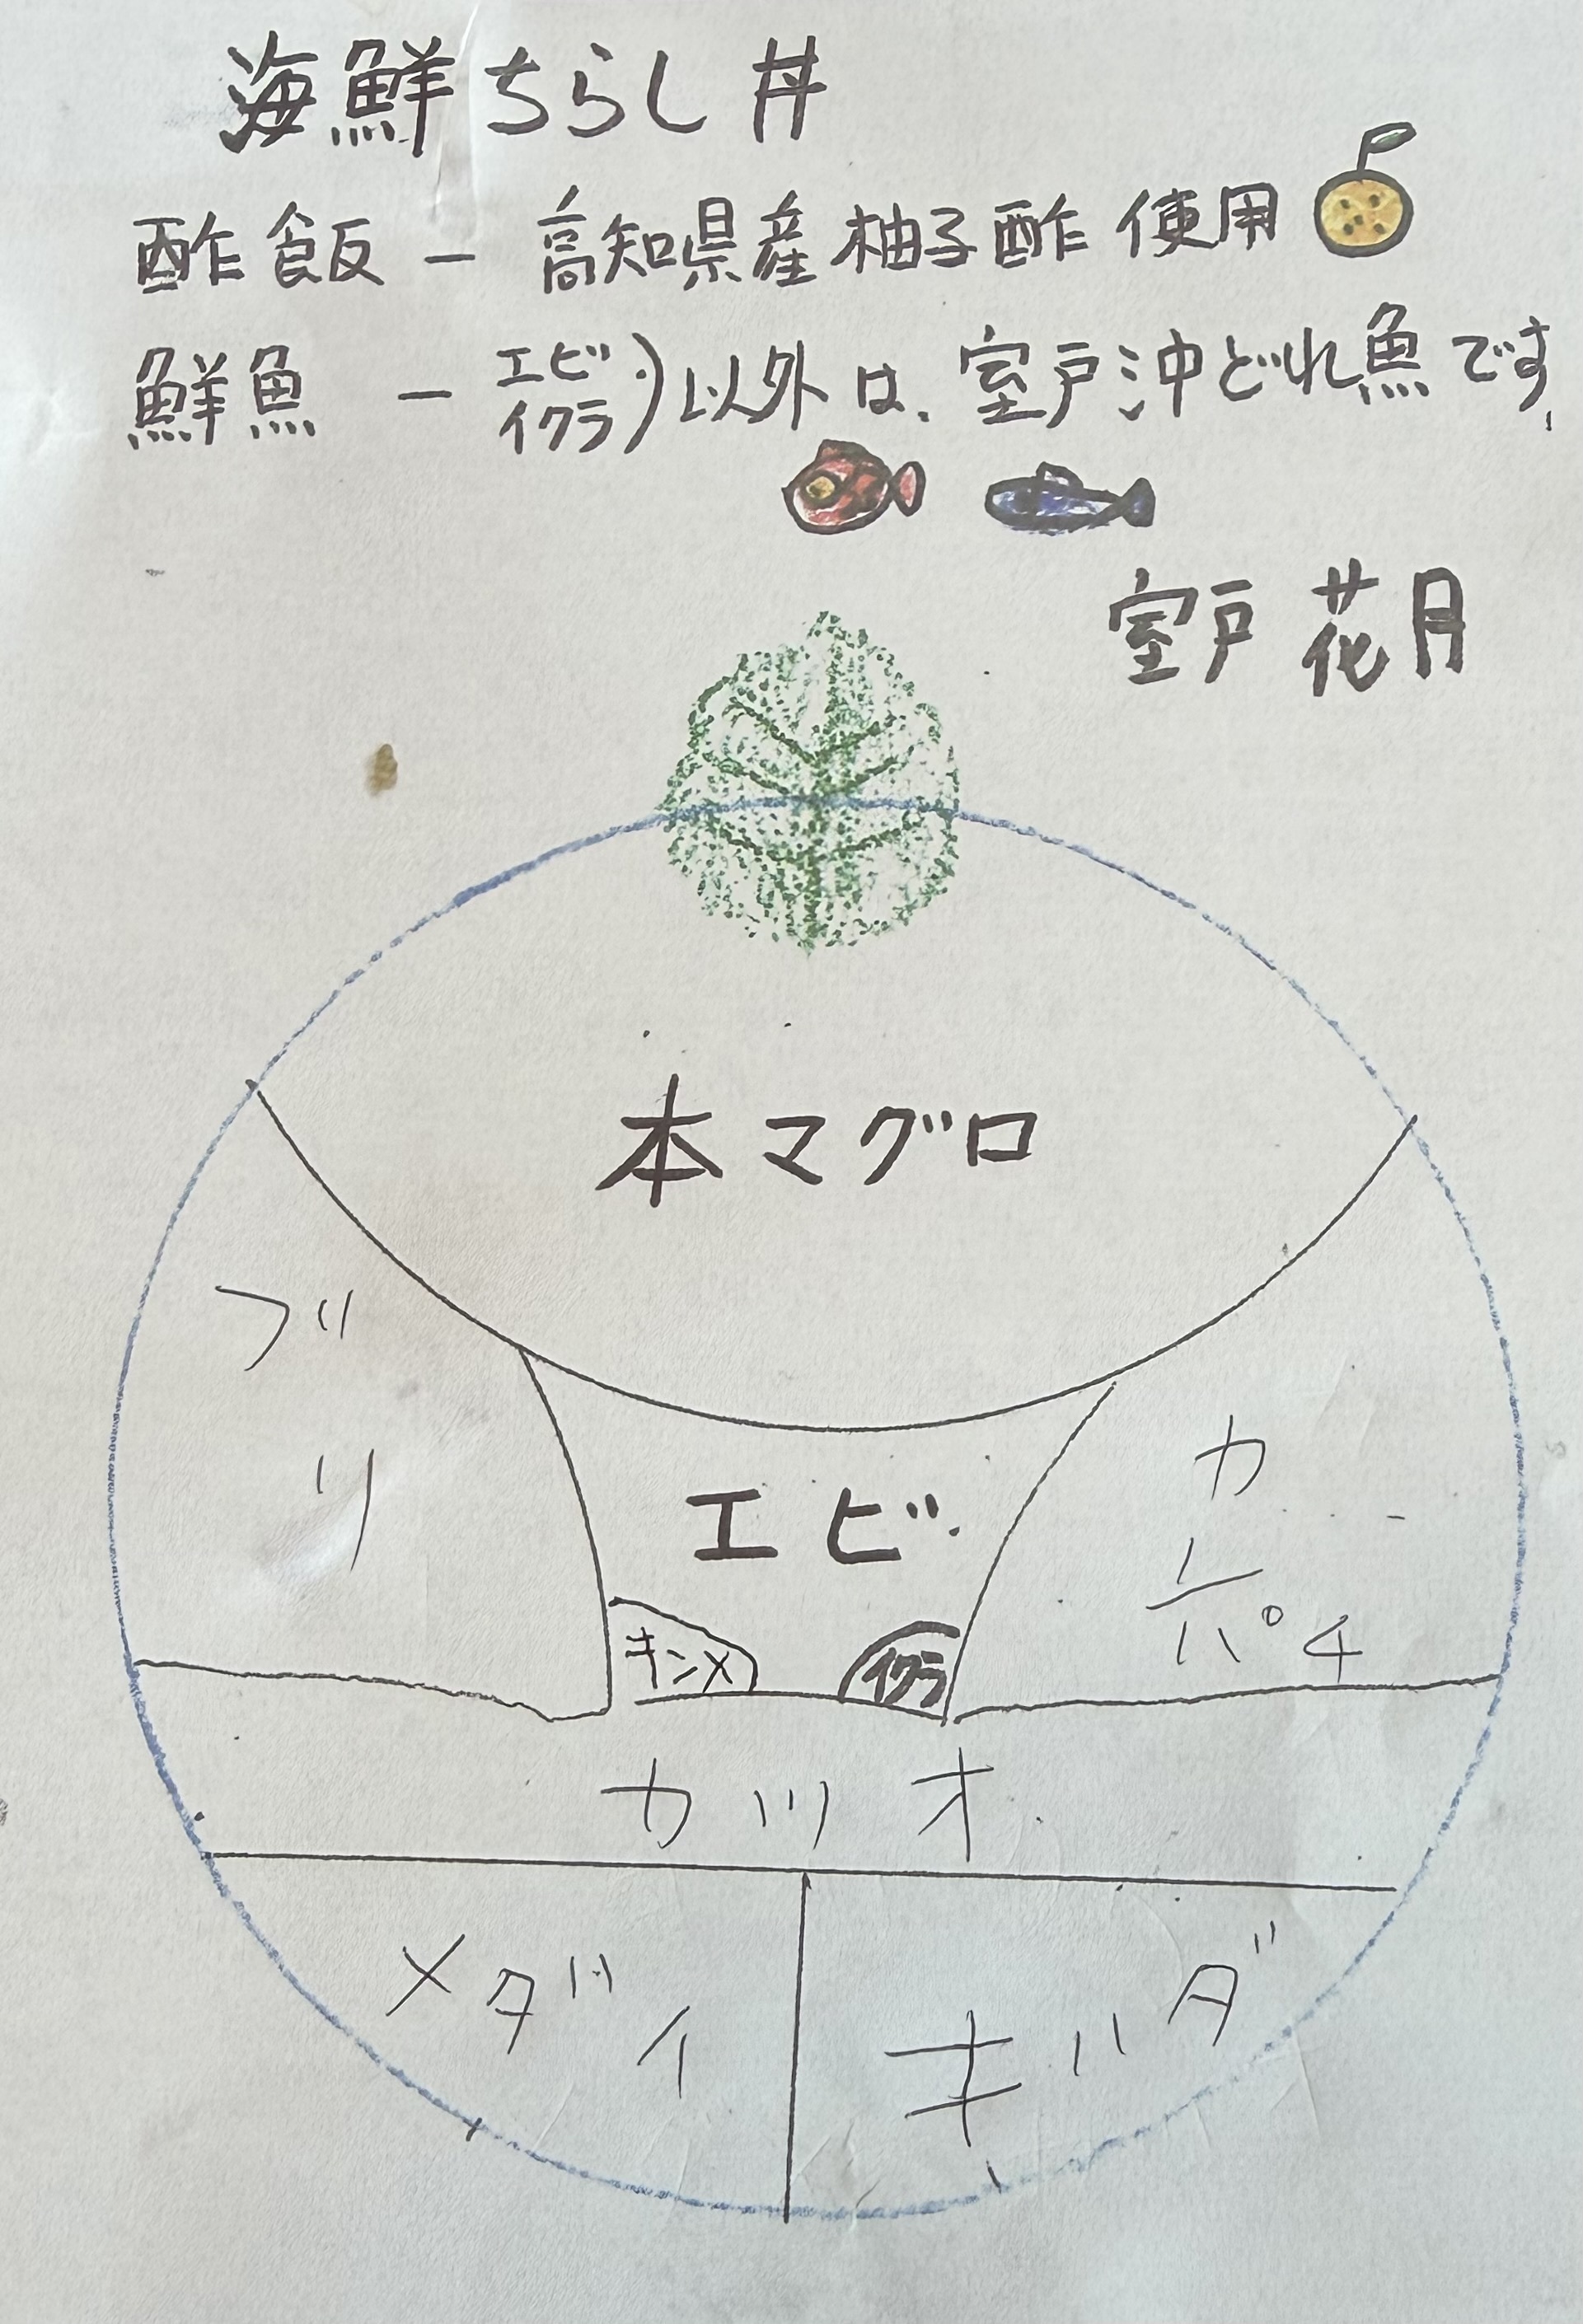 海鮮ちらし丼
酢飯 － 高知県産柚子酢使用
鮮魚 － エビ イクラ)以外は、室戸沖どれ魚です、
室戸 花月
本マグロ
ブリ
エビ
カンパチ
キンメ
イクラ
カツオ
メダイ
キハダ